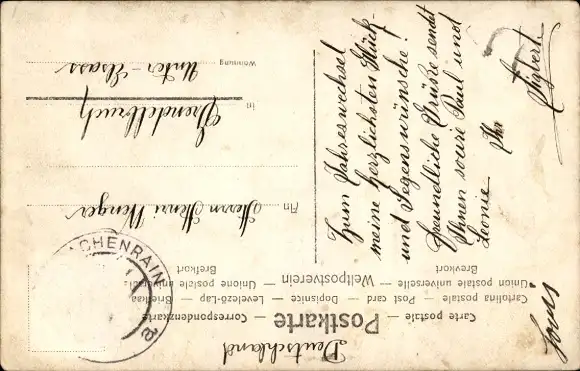 Deutschland
Postkarte
Carte postale — Correspondenzkarte
Cartolina postale — Post card — Dopisnice — Levelező-Lap — Briefkaart
Union postale universelle — Weltpostverein — Unione postale universale
Brevkort
Brefkort
ACHENRAIN
An Herrn Henri Wenger
in Grendelbruch
Wohnung Unter-Elsass
Zum Jahreswechsel
meine herzlichsten Glück-
und Segenswünsche!
Freundliche Grüße sendet
Ihnen sowie Paul und
Leonie Ihr
Sigbert.
Louis